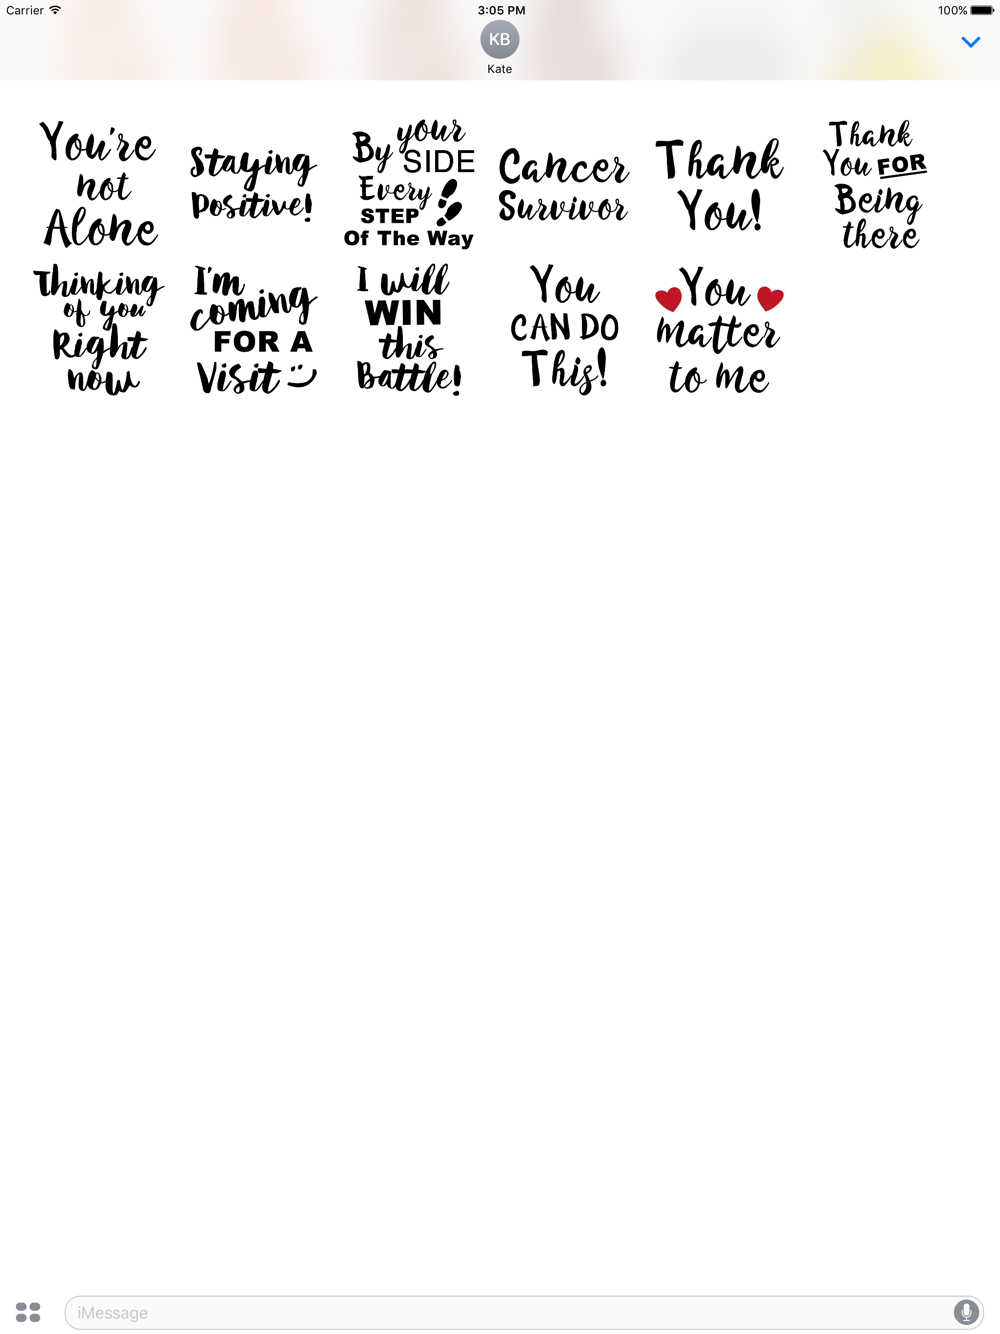 Carrier 3:05 PM 100%
KB
Kate
You're
not
Alone
Staying
Positive!
By your
SIDE
Every
STEP
Of The Way
Cancer
Survivor
Thank
You!
Thank
You FOR
Being
there
Thinking
of you
Right
now
I'm
coming
FOR A
Visit
I will
WIN
this
Battle!
You
CAN DO
This!
You
matter
to me
iMessage